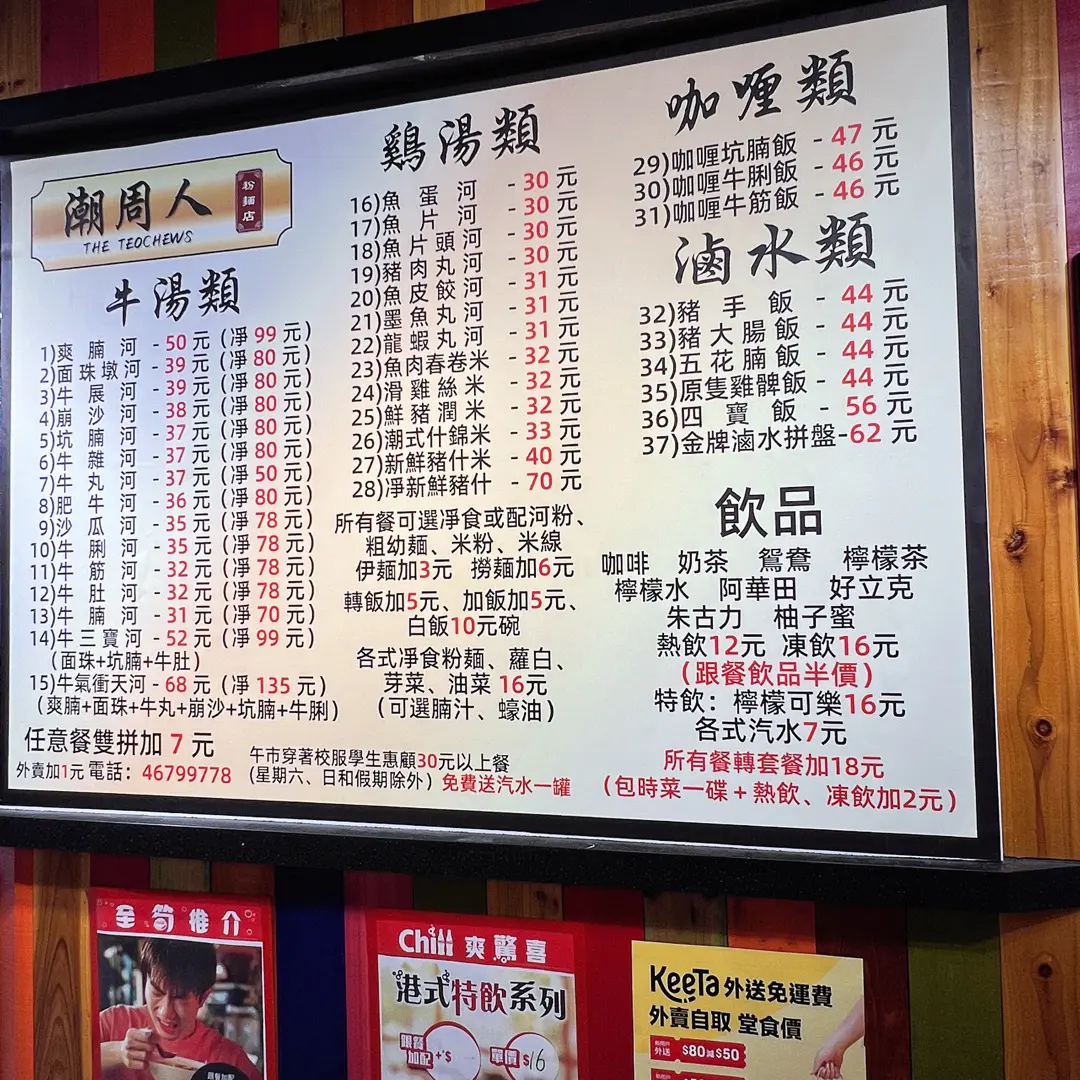 潮周人
粉麵店
THE TEOCHEWS
牛湯類
1)爽腩河 - 50 元 (凈 99 元)
2)面珠墩河 - 39 元 (凈 80 元)
3)牛展河 - 39 元 (凈 80 元)
4)崩沙河 - 38 元 (凈 80 元)
5)坑腩河 - 37 元 (凈 80 元)
6)牛雜河 - 37 元 (凈 80 元)
7)牛丸河 - 37 元 (凈 50 元)
8)肥牛河 - 36 元 (凈 80 元)
9)沙瓜河 - 35 元 (凈 78 元)
10)牛脷河 - 35 元 (凈 78 元)
11)牛筋河 - 32 元 (凈 78 元)
12)牛肚河 - 32 元 (凈 78 元)
13)牛腩河 - 31 元 (凈 70 元)
14)牛三寶河 - 52 元 (凈 99 元)
(面珠+坑腩+牛肚)
15)牛氣衝天河 - 68 元 (凈 135 元)
(爽腩+面珠+牛丸+崩沙+坑腩+牛脷)
任意餐雙拼加 7 元
外賣加1元 電話：46799778
鷄湯類
16)魚蛋河 - 30 元
17)魚片河 - 30 元
18)魚片頭河 - 30 元
19)豬肉丸河 - 30 元
20)魚皮餃河 - 31 元
21)墨魚丸河 - 31 元
22)龍蝦丸河 - 31 元
23)魚肉春卷米 - 32 元
24)滑雞絲米 - 32 元
25)鮮豬潤米 - 32 元
26)潮式什錦米 - 33 元
27)新鮮豬什米 - 40 元
28)凈新鮮豬什 - 70 元
所有餐可選凈食或配河粉、
粗幼麵、米粉、米線
伊麵加3元 撈麵加6元
轉飯加5元、加飯加5元、
白飯10元碗
各式凈食粉麵、蘿白、
芽菜、油菜 16元
(可選腩汁、蠔油)
午市穿著校服學生惠顧30元以上餐
(星期六、日和假期除外) 免費送汽水一罐
咖喱類
29)咖喱坑腩飯 - 47 元
30)咖喱牛脷飯 - 46 元
31)咖喱牛筋飯 - 46 元
滷水類
32)豬手飯 - 44 元
33)豬大腸飯 - 44 元
34)五花腩飯 - 44 元
35)原隻雞髀飯 - 44 元
36)四寶飯 - 56 元
37)金牌滷水拼盤-62 元
飲品
咖啡 奶茶 鴛鴦 檸檬茶
檸檬水 阿華田 好立克
朱古力 柚子蜜
熱飲12元 凍飲16元
(跟餐飲品半價)
特飲：檸檬可樂16元
各式汽水7元
所有餐轉套餐加18元
(包時菜一碟 + 熱飲、凍飲加2元)
全筍推介
跟餐加配
Chill 爽驚喜
港式特飲系列
跟餐加配 +$
單價 $16
KeeTa 外送免運費
外賣自取 堂食價
外送 $80減$50